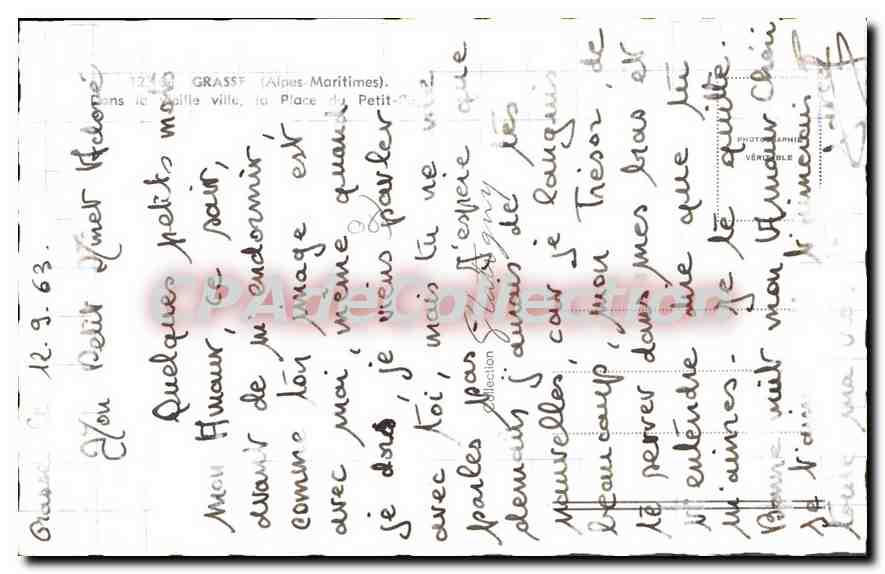 Grasse le 12.9.63.
Mon Petit Minet Adoré
Quelques petits mots
mon Amour, ce soir,
avant de m'endormir,
comme ton image est
avec moi, même quand
je dors, je viens parler
avec toi, mais tu ne me
parles pas - J'espère que
demain j'aurais de tes
nouvelles, car je languis
beaucoup, mon Trésor, de
te serrer dans mes bras et
t'entendre dire que tu
m'aimes - Je te quitte.
Bonne nuit mon Amour Chéri
Je t'aime t'aimerais
toute ma vie.
GRASSE (Alpes-Maritimes).
Dans la vieille ville, la Place du Petit-
Collection
PHOTOGRAPHIE
VÉRITABLE
CPAdeCollection